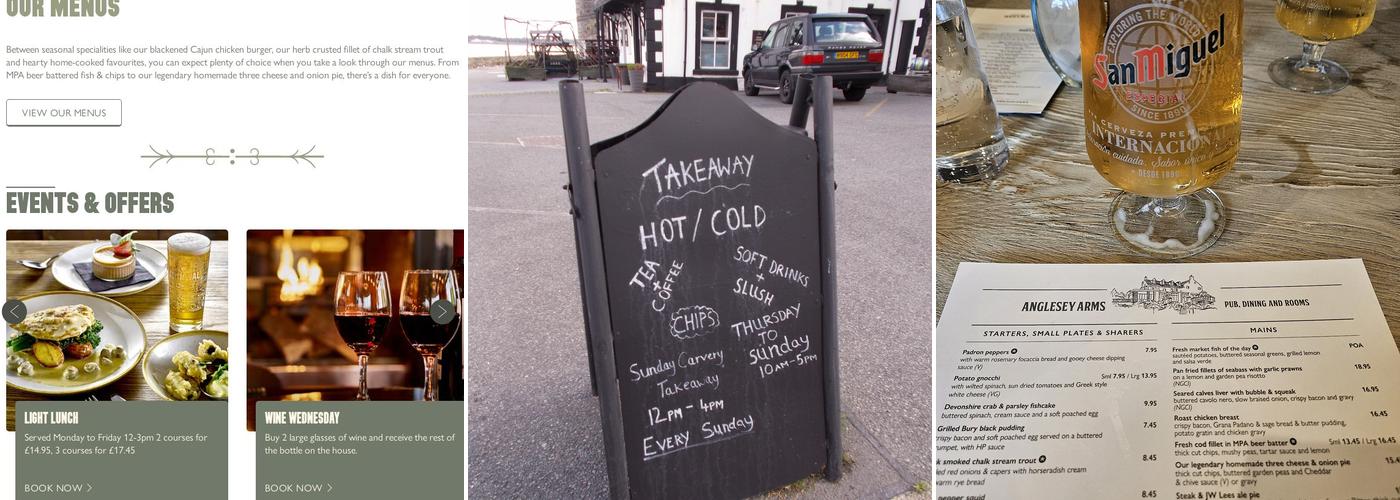 OUR MENUS
Between seasonal specialities like our blackened Cajun chicken burger, our herb crusted fillet of chalk stream trout
and hearty home-cooked favourites, you can expect plenty of choice when you take a look through our menus. From
MPA beer battered fish & chips to our legendary homemade three cheese and onion pie, there's a dish for everyone.
VIEW OUR MENUS
EVENTS & OFFERS
LIGHT LUNCH
Served Monday to Friday 12-3pm 2 courses for
£14.95, 3 courses for £17.45
BOOK NOW
WINE WEDNESDAY
Buy 2 large glasses of wine and receive the rest of
the bottle on the house.
BOOK NOW
TAKEAWAY
HOT / COLD
TEA
+
COFFEE
SOFT DRINKS
+
SLUSH
CHIPS
THURSDAY
TO
Sunday
10AM-5PM
Sunday Carvery
Takeaway
12.PM - 4PM
EVERY Sunday
EXPLORING THE WORLD
San Miguel
ESPECIAL
SINCE 1890
CERVEZA
INTERNACIONAL
cuidada, Sabor único
DESDE 1890
ANGLESEY ARMS
PUB, DINING AND ROOMS
STARTERS, SMALL PLATES & SHARERS
Padron peppers 7.95
with warm rosemary focaccia bread and gooey cheese dipping
sauce (V)
Potato gnocchi Sml 7.95 / Lrg 13.95
with wilted spinach, sun dried tomatoes and Greek style
white cheese (VG)
Devonshire crab & parsley fishcake 9.95
buttered spinach, cream sauce and a soft poached egg
Grilled Bury black pudding 7.45
crispy bacon and soft poached egg served on a buttered
crumpet, with HP sauce
smoked chalk stream trout 8.45
red onions & capers with horseradish cream
warm rye bread
pepper squid 8.45
MAINS
Fresh market fish of the day POA
sautéed potatoes, buttered seasonal greens, grilled lemon
and salsa verde
Pan fried fillets of seabass with garlic prawns 18.95
on a lemon and garden pea risotto
(NGCI)
Seared calves liver with bubble & squeak 16.95
buttered cavolo nero, slow braised onion, crispy bacon and gravy
(NGCI)
Roast chicken breast 16.45
crispy bacon, Grana Padano & sage bread & butter pudding,
potato gratin and chicken gravy
Fresh cod fillet in MPA beer batter Sml 13.45 / Lrg 16.45
thick cut chips, mushy peas, tartar sauce and lemon
Our legendary homemade three cheese & onion pie
thick cut chips, buttered garden peas and Cheddar
& chive sauce (V) or gravy
Steak & JW Lees ale pie